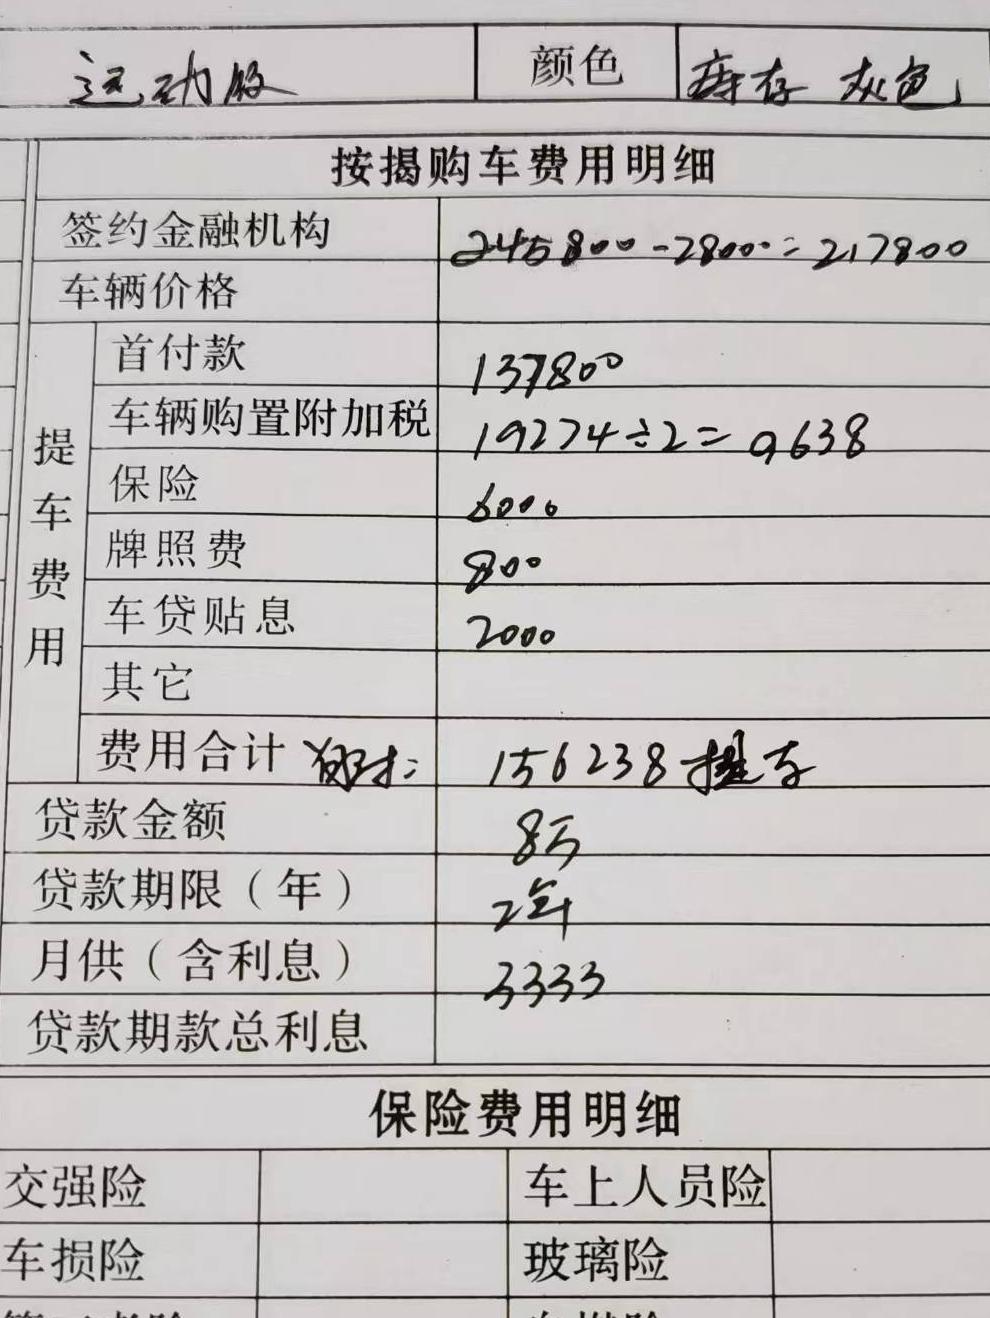 运动版 颜色 库存 灰色
按揭购车费用明细
签约金融机构 245800-28000=217800
车辆价格
提车费用
首付款 137800
车辆购置附加税 19274÷2=9638
保险 6000
牌照费 800
车贷贴息 2000
其它
费用合计 156238提车
贷款金额 8万
贷款期限（年） 2年
月供（含利息） 3333
贷款期款总利息
保险费用明细
交强险 车上人员险
车损险 玻璃险